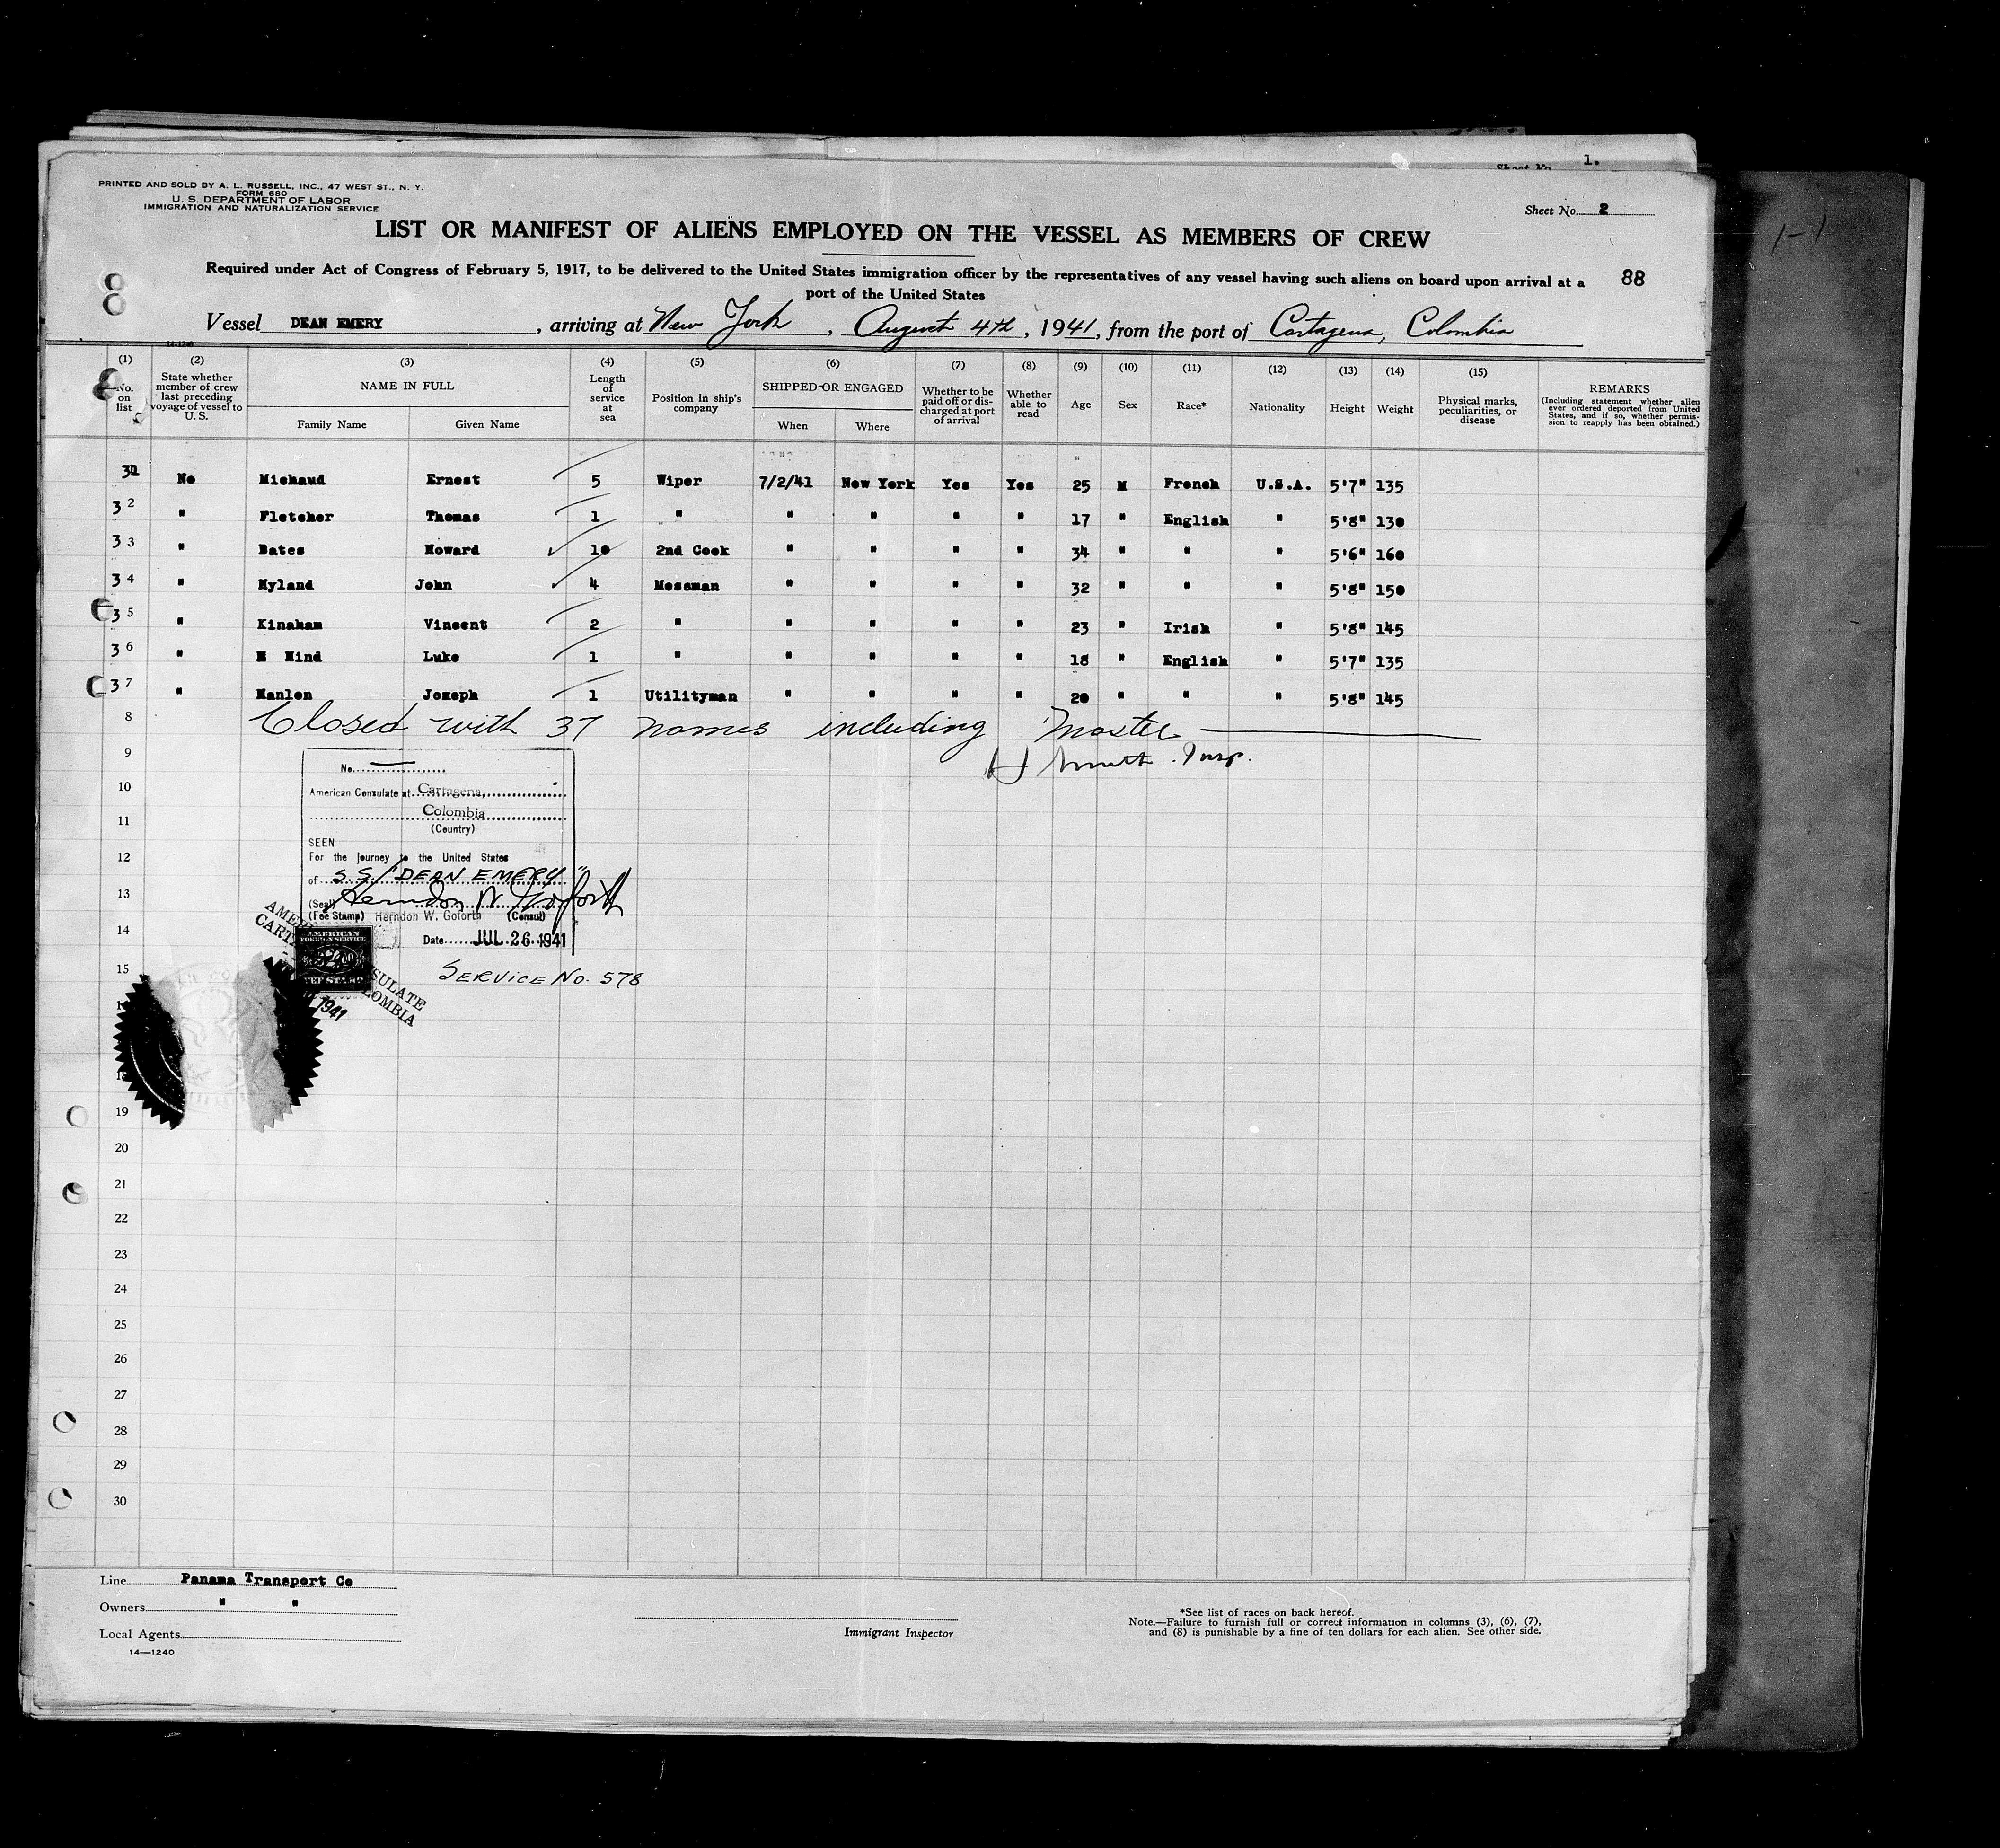 1.
PRINTED AND SOLD BY A. L. RUSSELL, INC., 47 WEST ST., N. Y.
FORM 680
U. S. DEPARTMENT OF LABOR
IMMIGRATION AND NATURALIZATION SERVICE
Sheet No. 2
LIST OR MANIFEST OF ALIENS EMPLOYED ON THE VESSEL AS MEMBERS OF CREW
Required under Act of Congress of February 5, 1917, to be delivered to the United States immigration officer by the representatives of any vessel having such aliens on board upon arrival at a
port of the United States
88
Vessel DEAN EMERY, arriving at New York, August 4th, 1941, from the port of Cartagena, Colombia
14-1240
(1) (2) (3) (4) (5) (6) (7) (8) (9) (10) (11) (12) (13) (14) (15)
No. on list
State whether member of crew last preceding voyage of vessel to U. S.
NAME IN FULL
Family Name
Given Name
Length of service at sea
Position in ship's company
SHIPPED OR ENGAGED
When
Where
Whether to be paid off or discharged at port of arrival
Whether able to read
Age
Sex
Race*
Nationality
Height
Weight
Physical marks, peculiarities, or disease
REMARKS
(Including statement whether alien ever ordered deported from United States, and if so, whether permission to reapply has been obtained.)
31 No Michaud Ernest 5 Wiper 7/2/41 New York Yes Yes 25 M French U.S.A. 5'7" 135
32 " Fletcher Thomas 1 " " " " " 17 " English " 5'8" 130
33 " Bates Howard 10 2nd Cook " " " " 34 " " " 5'6" 160
34 " Hyland John 4 Messman " " " " 32 " " " 5'8" 150
35 " Kinaham Vincent 2 " " " " " 23 " Irish " 5'8" 145
36 " Luke 1 " " " " " 18 " English " 5'7" 135
37 " Hanlon Jozeph 1 Utilityman " " " " 20 " " " 5'8" 145
8 Closed with 37 names including Master
9
10
11
12
13
14
15
19
20
21
22
23
24
25
26
27
28
29
30
No.
American Consulate at Cartagena,
Colombia
(Country)
SEEN
For the journey to the United States
of S.S. "DEAN EMERY"
(Seal) Herndon W. Goforth
(Fee Stamp) Herndon W. Goforth (Consul)
Date JUL 26 1941
SERVICE No. 578
AMERICAN
FOREIGN SERVICE
FEE STAMP
1941
Line Panama Transport Co
Owners " "
Local Agents
14—1240
Immigrant Inspector
*See list of races on back hereof.
Note.—Failure to furnish full or correct information in columns (3), (6), (7),
and (8) is punishable by a fine of ten dollars for each alien. See other side.